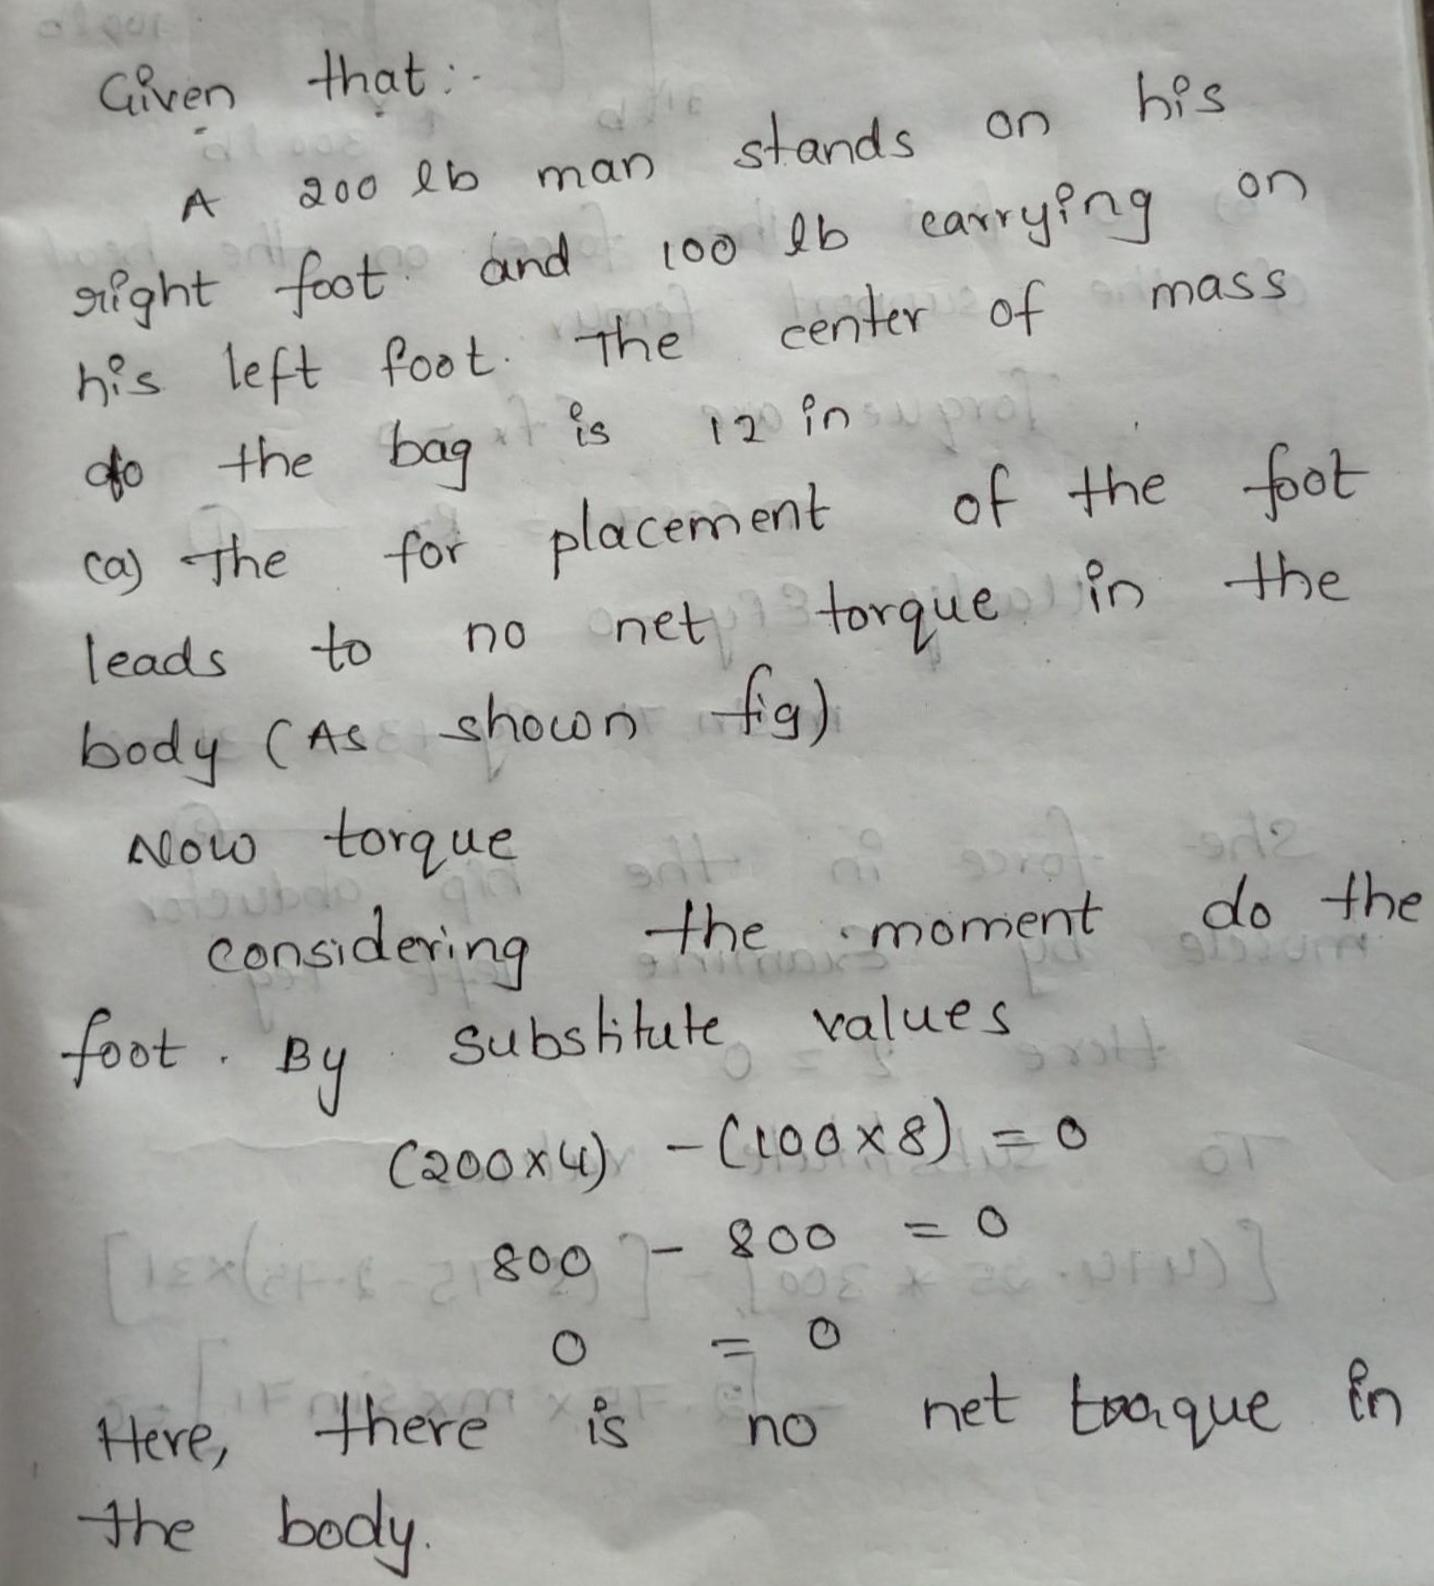 Given that :-
A 200 lb man stands on his
right foot and 100 lb carrying on
his left foot. The center of mass
do the bag is 12 in
(a) The for placement of the foot
leads to no net torque in the
body (As shown fig)
Now torque
considering the moment do the
foot. By substitute values
(200x4) - (100x8) = 0
800 - 800 = 0
0 = 0
Here, there is no net toaque in
the body.